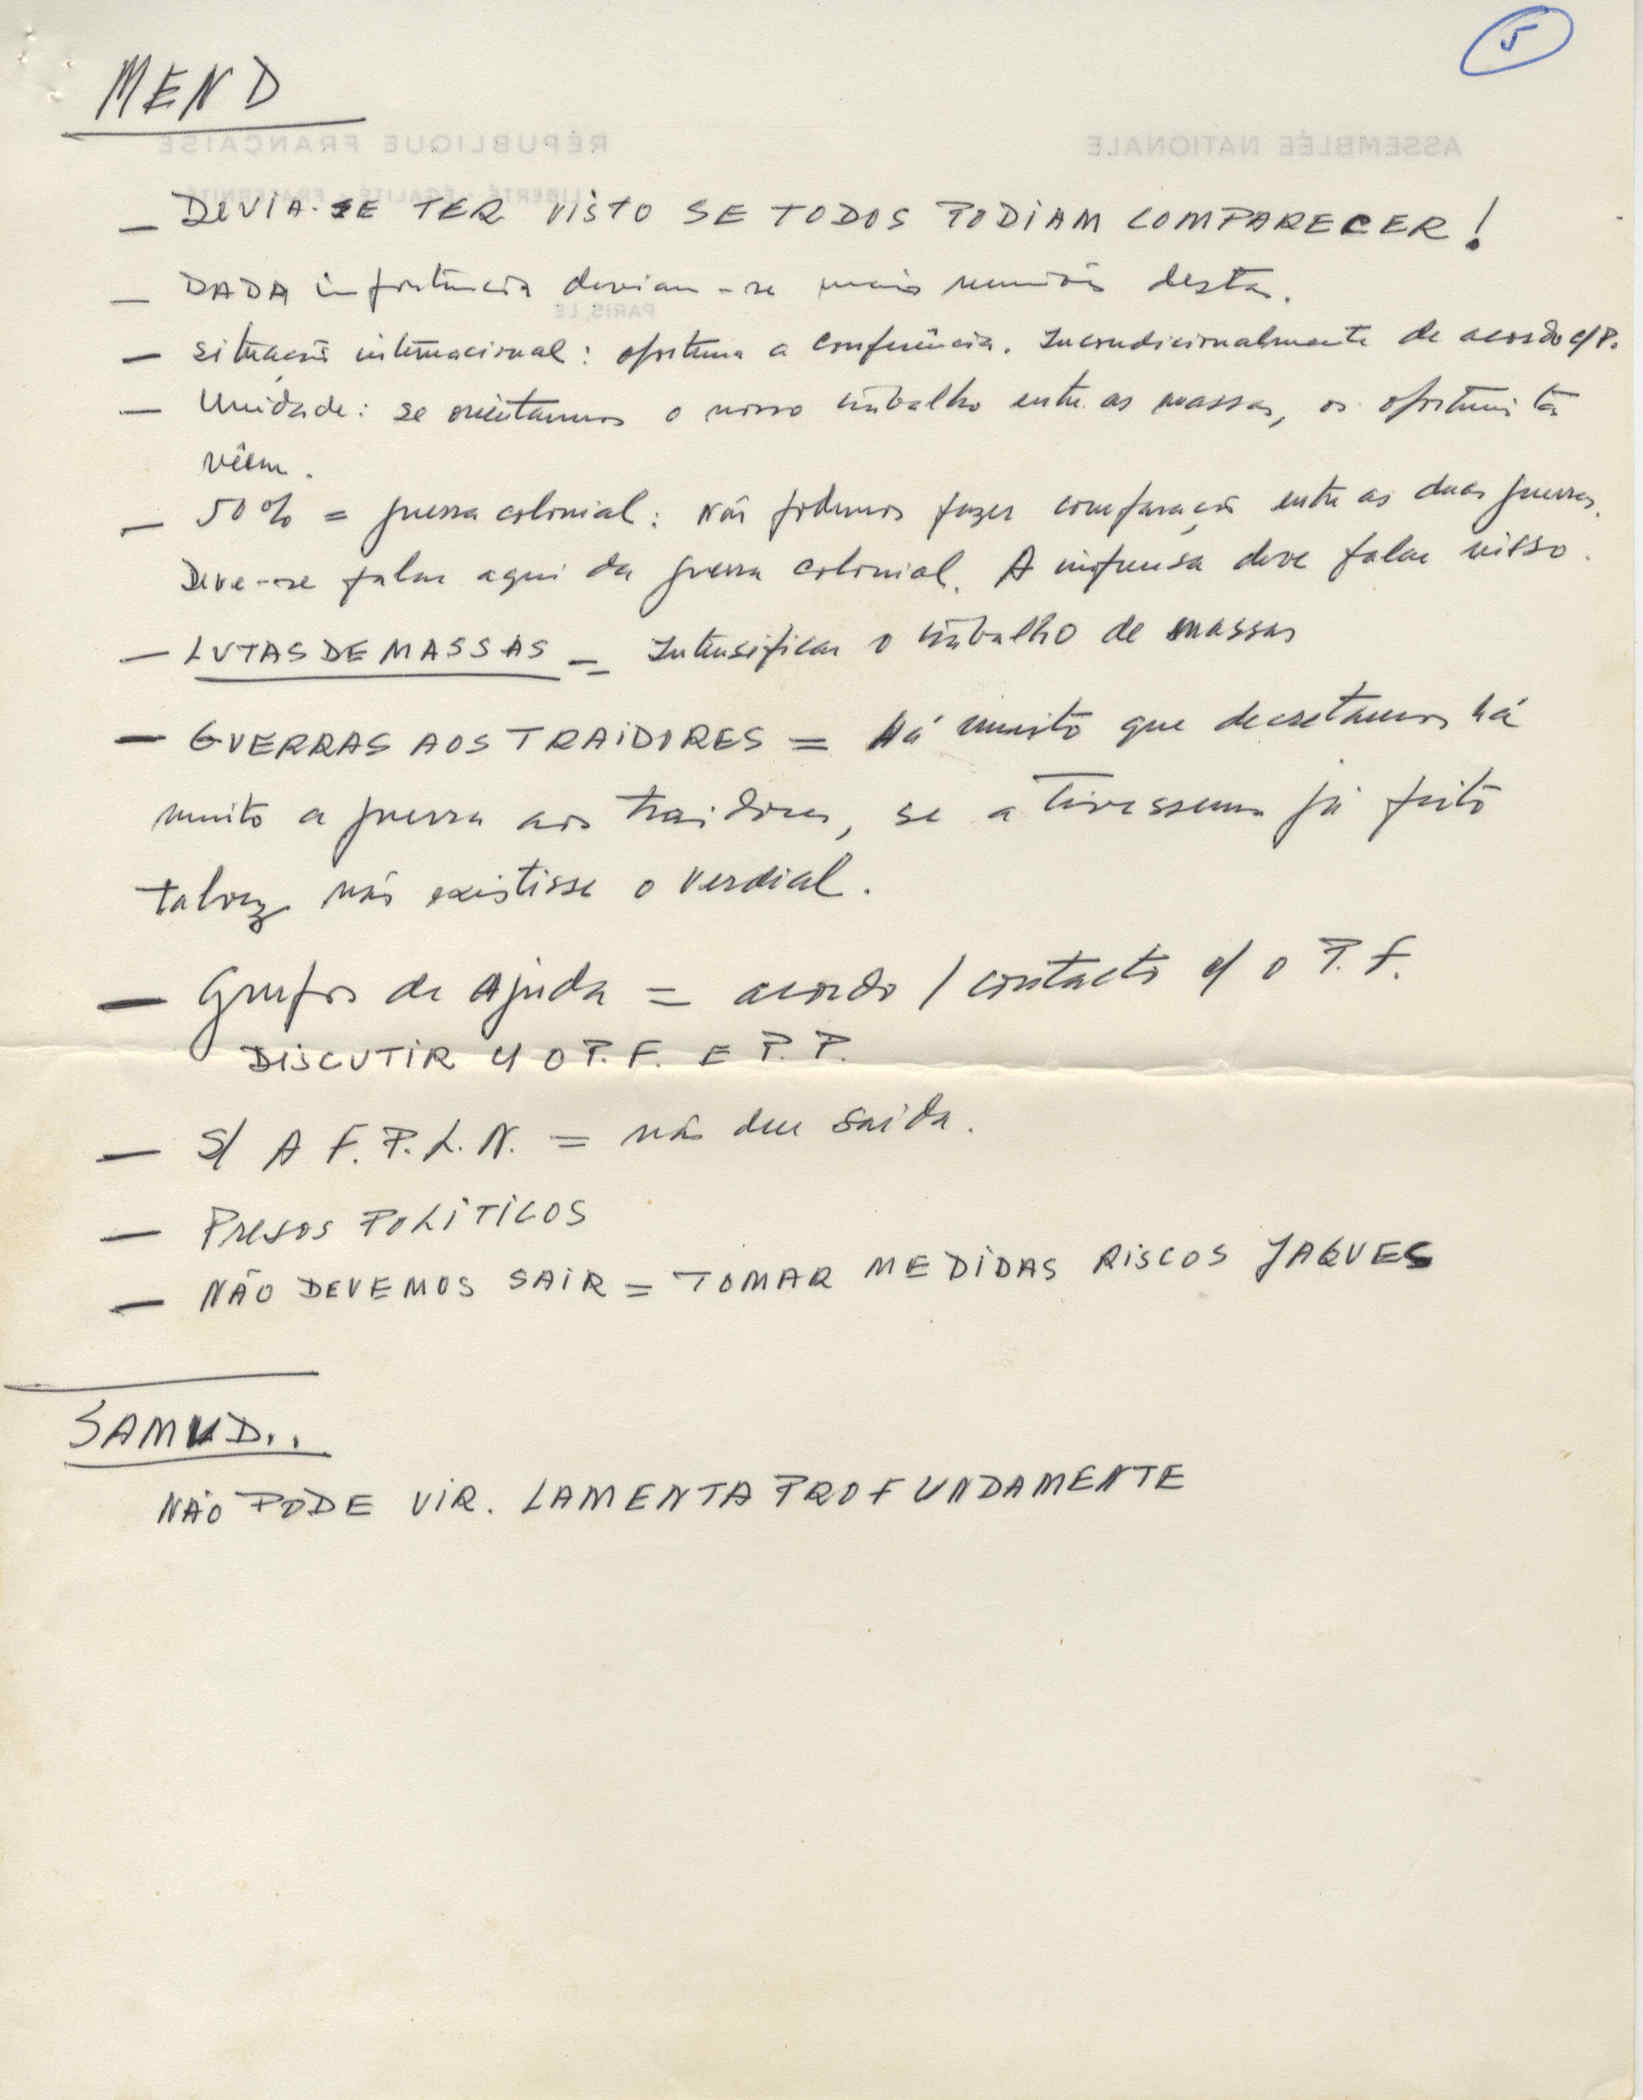 5
MEND
RÉPUBLIQUE FRANÇAISE ASSEMBLÉE NATIONALE
LIBERTÉ - ÉGALITÉ - FRATERNITÉ
— DEVIA-SE TER VISTO SE TODOS PODIAM COMPARECER!
— DADA importância deviam-se mais reuniões destas.
PARIS, LE
— situação internacional: oportuna a conferência. Incondicionalmente de acordo c/P.
— Unidade: se orientarmos o nosso trabalho entre as massas, os oportunistas
vêem.
— 50% = guerra colonial: Não podemos fazer comparação entre as duas guerras.
Deve-se falar aqui da guerra colonial. A imprensa deve falar nisso.
— LUTAS DE MASSAS = Intensificar o trabalho de massas
— GUERRAS AOS TRAIDORES = Há muito que decretamos há
muito a guerra aos traidores, se a tivessemos já feito
talvez não existisse o verdial.
— Grupos de Ajuda = acordo / contacto c/ o P. F.
DISCUTIR c/ O P. F. E P. P.
— S/ A F. P. L. N. = não deu saida.
— Presos POLITICOS
— NÃO DEVEMOS SAIR = TOMAR MEDIDAS RISCOS JAQUES
SAMUD..
NÃO PODE VIR. LAMENTA PROFUNDAMENTE